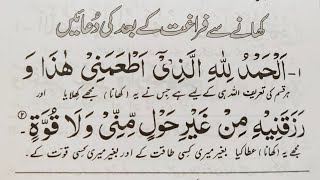 کھانے سے فراغت کے بعد کی دُعائیں
۱- اَلْحَمْدُ لِلّٰهِ الَّذِیْۤ اَطْعَمَنِیْ هٰذَا وَ
ہر قسم کی تعریف اللہ ہی کے لیے ہے جس نے یہ (کھانا) مجھے کھلایا اور
رَزَقَنِیْهِ مِنْ غَیْرِ حَوْلٍ مِّنِّیْ وَلَا قُوَّةٍ ۔ (۲)
مجھے یہ (کھانا) عطا کیا بغیر میری کسی طاقت کے اور بغیر میری کسی قوت کے۔